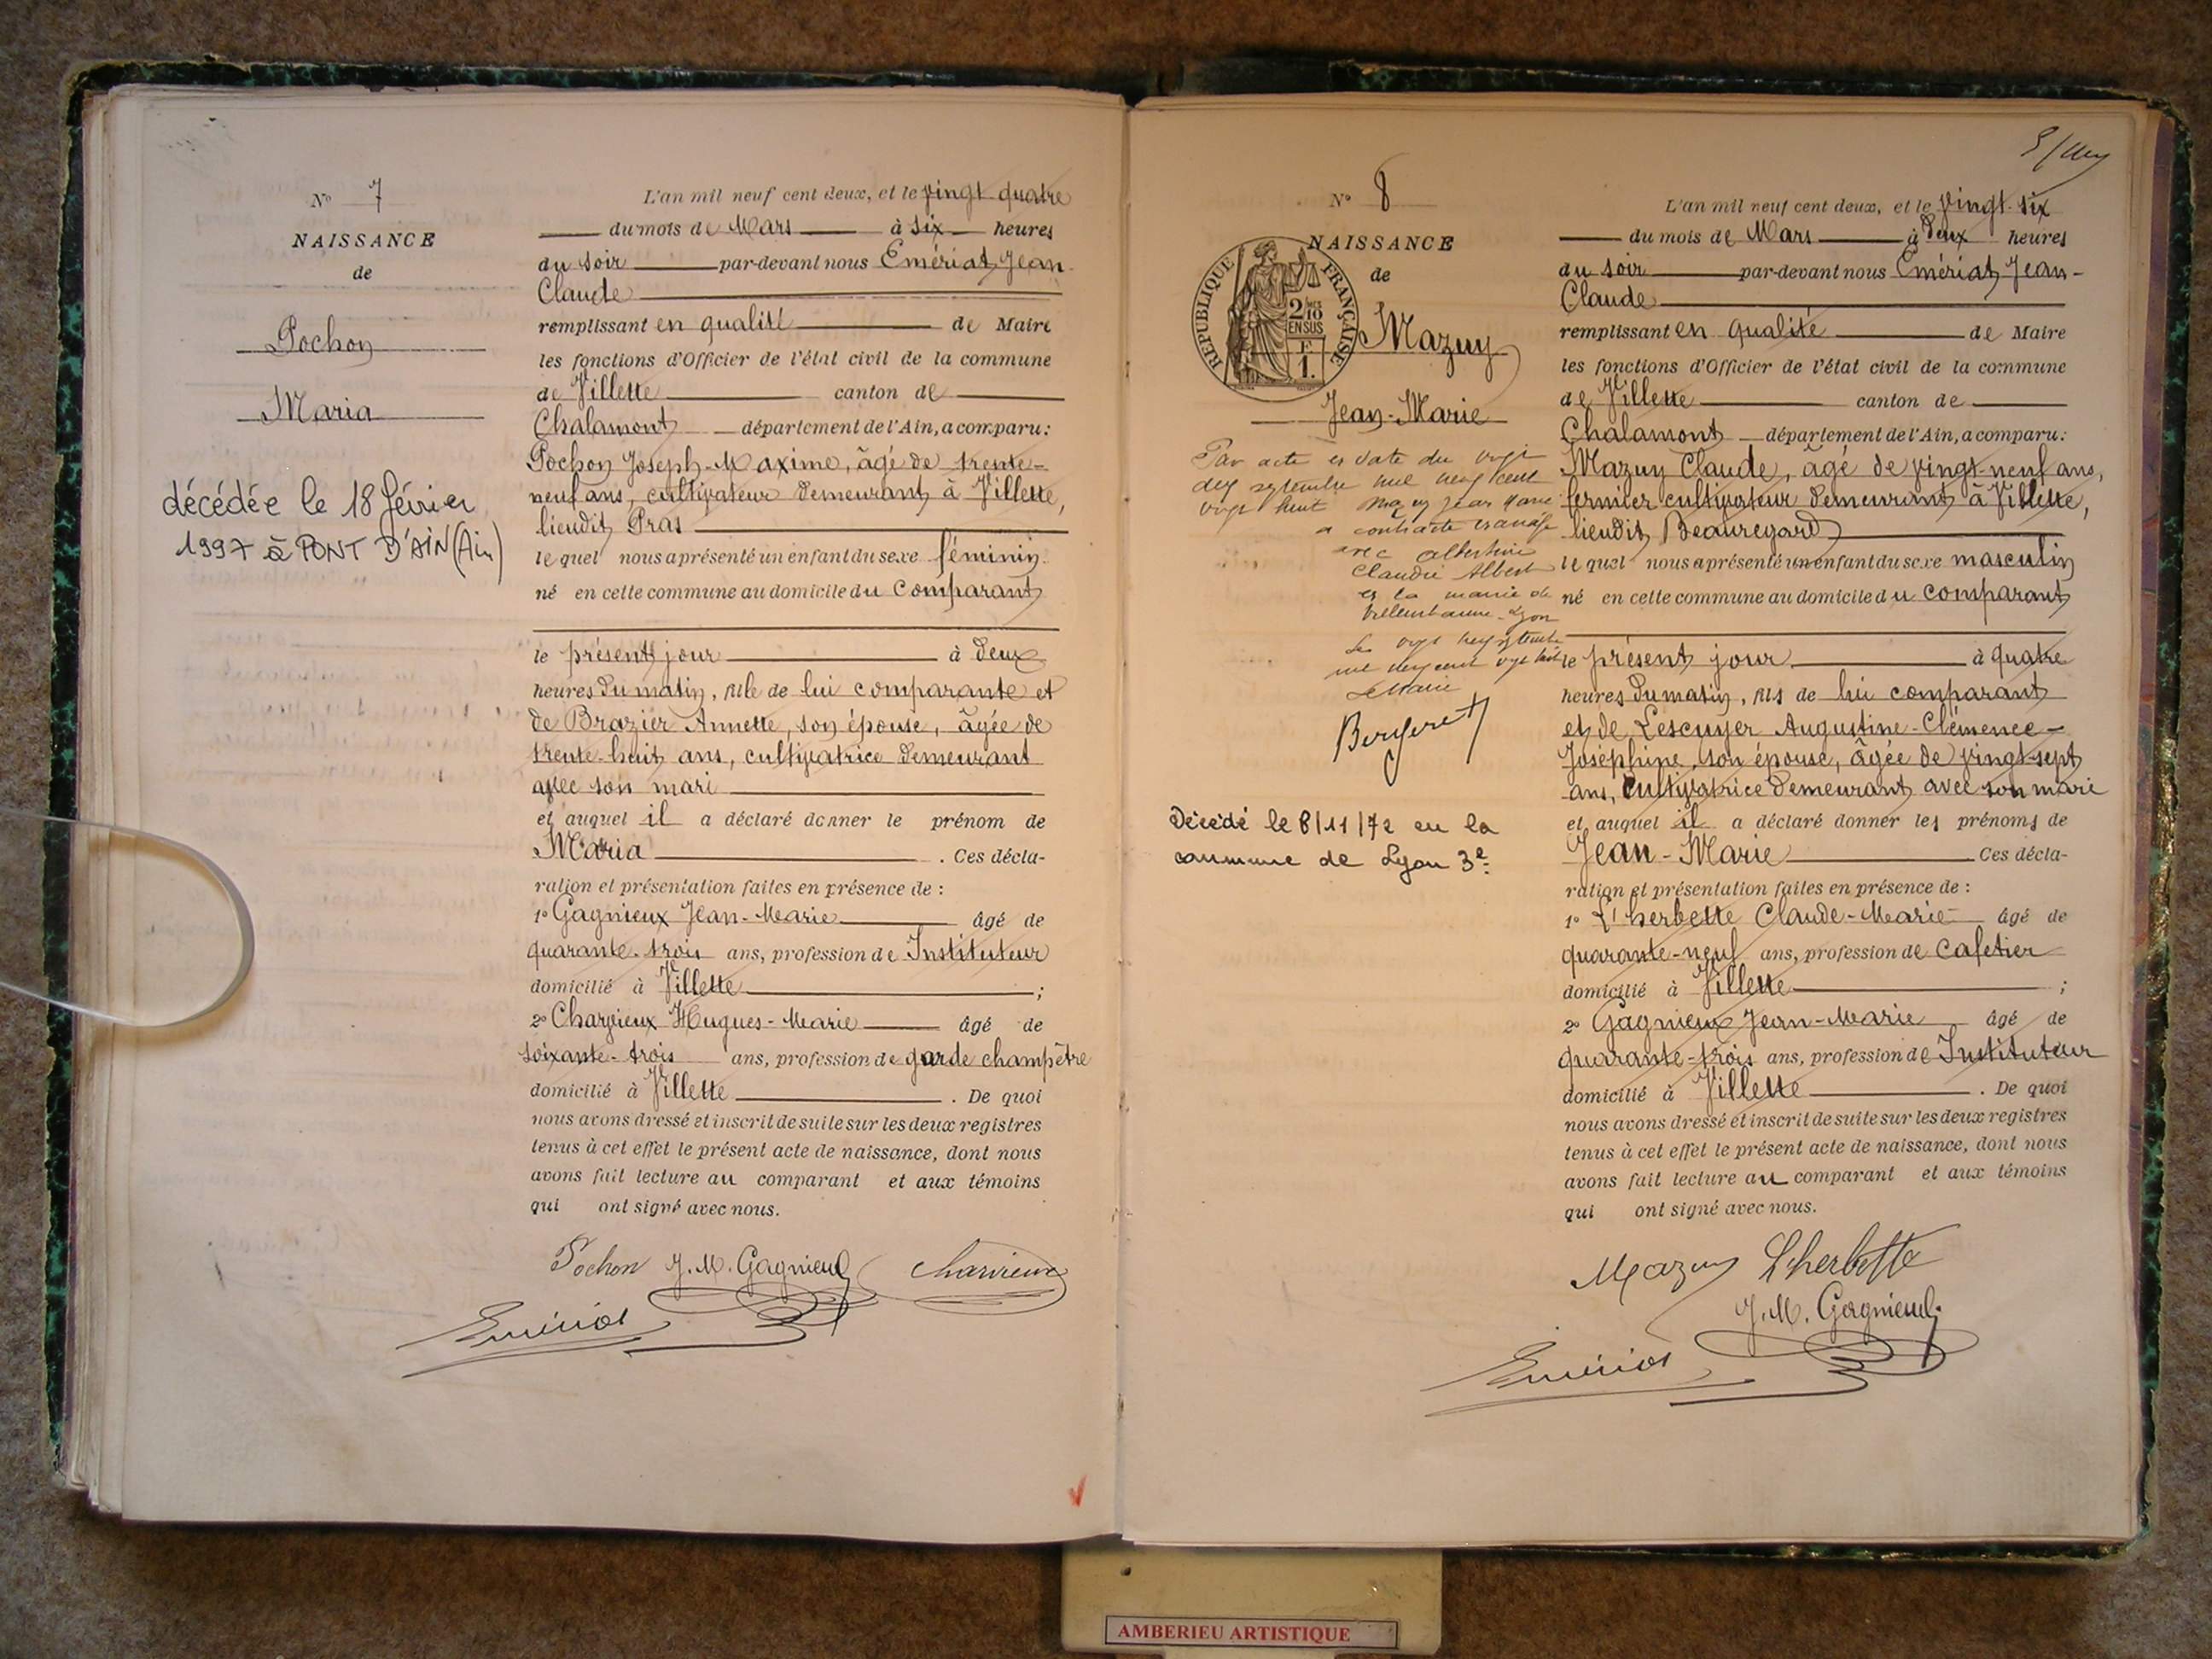 N° 7
NAISSANCE
de
Pochon
Maria
décédée le 18 février
1997 à PONT D'AIN (Ain)
L'an mil neuf cent deux, et le vingt quatre
du mois de Mars à six heures
du soir par-devant nous Emériat Jean-
Claude
remplissant en qualité de Maire
les fonctions d'Officier de l'état civil de la commune
de Villette canton de
Chalamont département de l'Ain, a comparu:
Pochon Joseph-Maxime, âgé de trente-
neuf ans, cultivateur demeurant à Villette,
lieudit Pras
lequel nous a présenté un enfant du sexe féminin
né en cette commune au domicile du comparant
le présent jour à deux
heures du matin, fille de lui comparante et
de Brazier Annette, son épouse, âgée de
trente-huit ans, cultivatrice demeurant
avec son mari
et auquel il a déclaré donner le prénom de
Maria. Ces décla-
ration et présentation faites en présence de :
1° Gagnieux Jean-Marie âgé de
quarante-trois ans, profession de Instituteur
domicilié à Villette ;
2° Charvieux Hugues-Marie âgé de
soixante-trois ans, profession de garde champêtre
domicilié à Villette. De quoi
nous avons dressé et inscrit de suite sur les deux registres
tenus à cet effet le présent acte de naissance, dont nous
avons fait lecture au comparant et aux témoins
qui ont signé avec nous.
Pochon J. M. Gagnieux Charvieux
Emériat
N° 8
NAISSANCE
de
REPUBLIQUE FRANÇAISE
2/10
EN SUS
1.
Mazuy
Jean-Marie
Par acte en date du vingt
neuf septembre mil neuf cent
vingt huit Mazuy Jean Marie
a contracté mariage
avec Albertine
Claudie Albert
à la mairie de
Villeurbanne-Lyon
Le vingt neuf septembre
mil neuf cent vingt huit
Le Maire
Décédé le 8/11/72 en la
commune de Lyon 3e.
L'an mil neuf cent deux, et le vingt-six
du mois de Mars à deux heures
du soir par-devant nous Emériat Jean-
Claude
remplissant en qualité de Maire
les fonctions d'Officier de l'état civil de la commune
de Villette canton de
Chalamont département de l'Ain, a comparu:
Mazuy Claude, âgé de vingt-neuf ans,
fermier cultivateur demeurant à Villette,
lieudit Beauregard
lequel nous a présenté un enfant du sexe masculin
né en cette commune au domicile du comparant
le présent jour à quatre
heures du matin, fils de lui comparant
et de Lescuyer Augustine-Clémence-
Joséphine, son épouse, âgée de vingt-sept
ans, cultivatrice demeurant avec son mari
et auquel il a déclaré donner les prénoms de
Jean-Marie Ces décla-
ration et présentation faites en présence de :
1° L'herbette Claude-Marie âgé de
quarante-neuf ans, profession de cafetier
domicilié à Villette ;
2° Gagnieux Jean-Marie âgé de
quarante-trois ans, profession de Instituteur
domicilié à Villette. De quoi
nous avons dressé et inscrit de suite sur les deux registres
tenus à cet effet le présent acte de naissance, dont nous
avons fait lecture au comparant et aux témoins
qui ont signé avec nous.
Mazuy Lherbette
J. M. Gagnieux
Emériat
AMBERIEU ARTISTIQUE